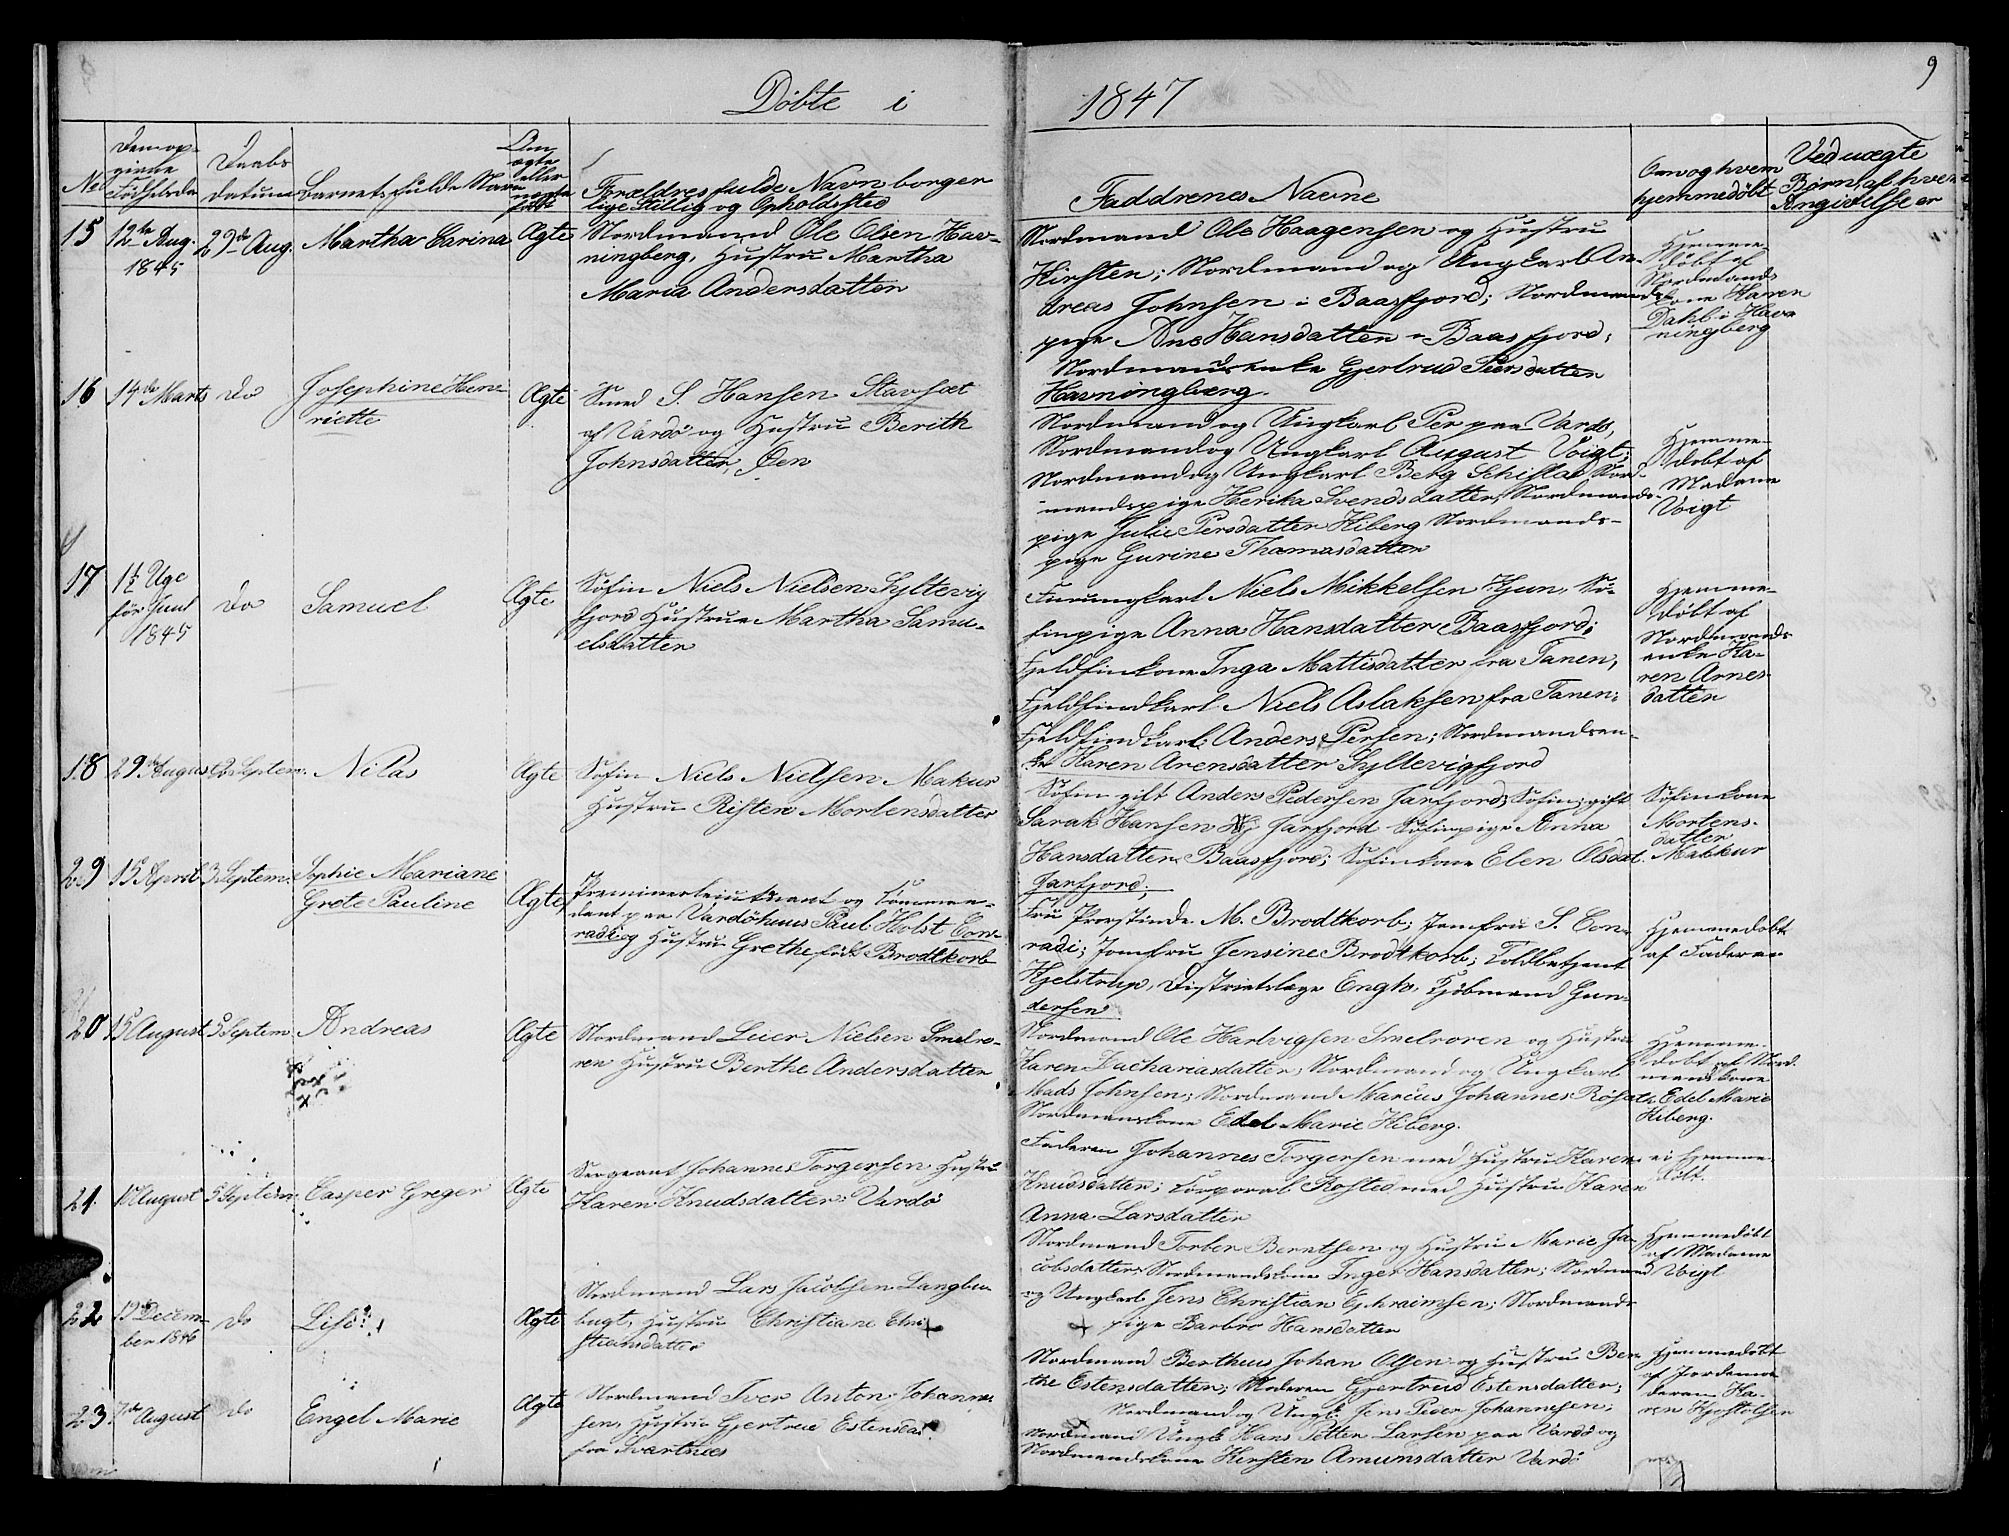 Döbte i
1847
9
No
Fødselsda
Daabs
datum
Barnets fulde Navn
ægte
eller
Forældres fulde Navn borger
lige Stillig og Opholdssted
Faddrenes Navne
Om og hvem
hjemmedøbt
Ved uægte
Børn, af hvem
Angivelse er
15
12te Aug.
1845
29de Aug.
Martha Carina
Ægte
Nordmand Ole Olsen Hav-
ningberg, Hustru Martha
Maria Andersdatter
Nordmand Ole Haagensen og Hustru
Kirsten; Nordmand og Ungkarl An-
dreas Johnsen i Baasfjord; Nordmands
pige Ane Hansdatter i Baasfjord;
Nordmandsenke Gjertrud Peersdatter
Havningberg.
Hjemme-
døbt af
Nordmands
kone Karen
Dahl i Hav
ningberg
16
14de Marts
do
Josephine Hen-
riette
Ægte
Smed S. Hansen Stavsæt
af Vardö og Hustru Berith
Johnsdatter Øen
Nordmand og Ungkarl Per paa Vardö,
Nordmand og Ungkarl August Voigt;
Nordmand og Ungkarl Berg Schistad Nord-
mandspige Henrika Svendsdatter, Nordmands-
pige Julie Persdatter Kiberg Nordmands-
pige Gurine Thomasdatter
Hjemme-
døbt af
Madame
Voigt
17
1½ Uge
før Juul
1845
do
Samuel
Ægte
Söfin Niels Nielsen Syltevig
fjord Hustrue Martha Samu-
elsdatter
Niels Mikkelsen Sö-
finpige Anna Hansdatter Baasfjord;
Fjeldfinkone Inga Mattisdatter fra Tanen,
Fjeldfindkarl Niels Aslaksen fra Tanen;
Fjeldfindkarl Anders Persen; Nordmandsen-
ke Karen Arensdatter Syltevigfjord
Hjemme-
døbt af
Nordmands
enke Ka-
ren Arnes
datter
18
29de August
2 Septem.
Nilas
Ægte
Söfin Niels Nielsen Makur
Hustru Risten Mortensdatter
Söfin gift Anders Pedersen Jarfjord; Søfin gift
Sarak Hansen Jarfjord Søfinpige Anna
Hansdatter Baasfjord; Søfinkone Elen Olsdat.
Jarfjord;
Søfinkone
Mortens-
datter
Makkur
29
15 April
3 Septem.
Sophie Mariane
Grete Pauline
Ægte
Premierleiutnant og Comman-
dant paa Vardöhuus Paul Holst Con-
radi og Hustru Grethe født Brodtkorb
Fru Provstinde M. Brodtkorb; Jomfru S. Con-
radi; Jomfru Jensine Brodtkorb; Toldbetjent
Kjelstrup, Districtslæge Engh, Kjöbmand Gun-
dersen
Hjemmedøbt
af Faderen
20
15 August
5 Septem
Andreas
Ægte
Nordmand Leier Nielsen Smelro-
ren Hustru Berthe Andersdatter
Nordmand Ole Hartvigsen Smelroren og Hustru
Karen Zachariasdatter, Nordmand og Ungkarl
Mads Johnsen; Nordmand Marcus Johannes Røseth,
Nordmanskone Edel Marie Kiberg.
Hjemme-
døbt af Nord-
mandskone
Edel Marie
Kiberg.
21.
1 August
5 Septem
Casper Greger
Ægte
Sergeant Johannes Torgersen Hustru
Karen Knudsdatter Vardö
Faderen Johannes Torgersen med Hustru Karen
Knudsdatter; Corporal Rosted med Hustru Karen
Anna Larsdatter
ei hjemme-
døbt.
22
19de Decem-
ber 1846
do
Lise
Ægte
Nordmand Lars Jacobsen Langbu-
bugt, Hustru Christiane Chri
stiansdatter
Nordmand Torber Berntsen og Hustru Marie Ja-
cobsdatter Nordmandskone Inger Hansdatter; Nordmand
og Ungkarl Jens Christian Ephraimsen; Nordmands
pige Barbro Hansdatter
Hjemmedøbt
af Madame
Voigt
23.
7de August
do
Engel Marie
Ægte
Nordmand Iver Anton Johanne
sen, Hustru Gjertrue Estensdat.
fra Svartnæs
Nordmand Bertheus Johan Olsen og Hustru Ber-
the Estensdatter; Moderen Gjertrud Estensdatter;
Nordmand og Ungk. Jens Peder Johannesen;
Nordmand Ungk Hans Petter Larsen paa Vardö og
Nordmandskone Kersten Amunsdatter Vardö
Hjemmedøbt
af Jordemo-
deren Ka-
ren Kristofsen